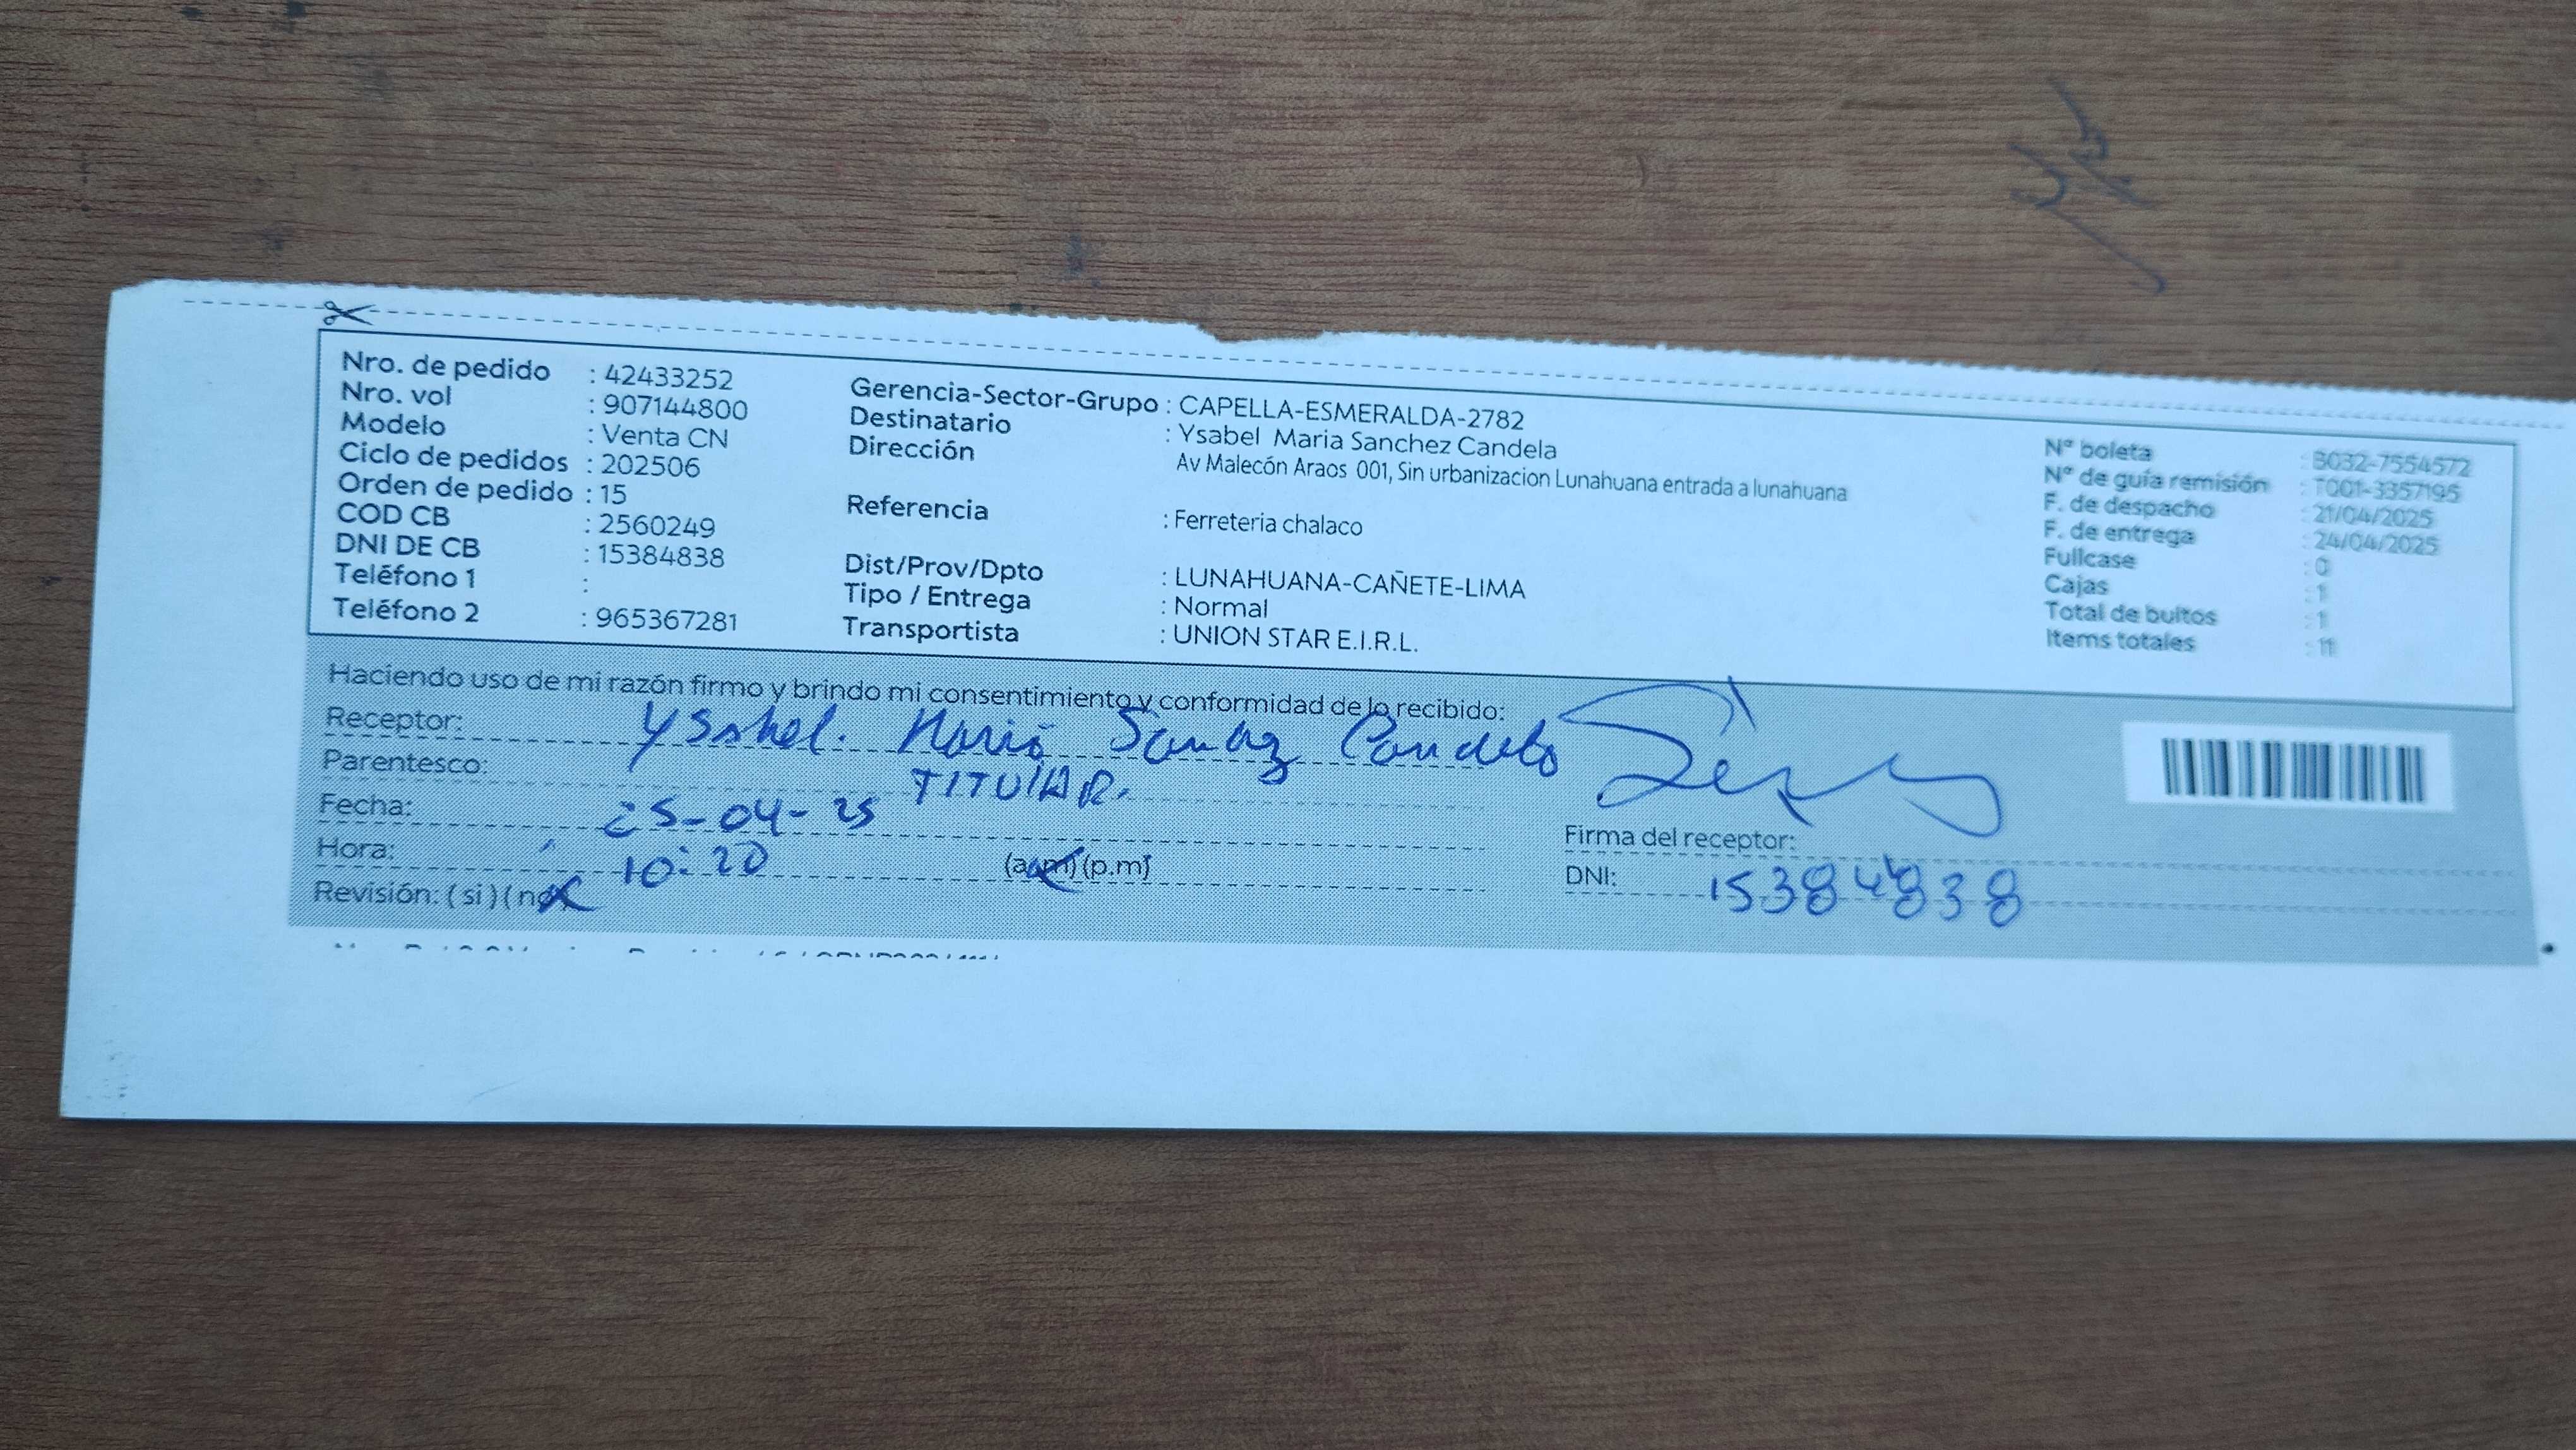 Nro. de pedido : 42433252
Nro. vol : 907144800
Modelo : Venta CN
Ciclo de pedidos : 202506
Orden de pedido : 15
COD CB : 2560249
DNI DE CB : 15384838
Teléfono 1 :
Teléfono 2 : 965367281
Gerencia-Sector-Grupo : CAPELLA-ESMERALDA-2782
Destinatario : Ysabel Maria Sanchez Candela
Dirección Av Malecón Araos 001, Sin urbanizacion Lunahuana entrada a lunahuana
Referencia : Ferreteria chalaco
Dist/Prov/Dpto : LUNAHUANA-CAÑETE-LIMA
Tipo / Entrega : Normal
Transportista : UNION STAR E.I.R.L.
Nº boleta : B032-7554572
Nº de guía remisión : T001-3357195
F. de despacho : 21/04/2025
F. de entrega : 24/04/2025
Fullcase : 0
Cajas : 1
Total de bultos : 1
Items totales : 11
Haciendo uso de mi razón firmo y brindo mi consentimiento y conformidad de lo recibido:
Receptor: Ysabel. Maria Candela
Parentesco: TITULAR.
Fecha: 25-04-25
Hora: 10:20 (a.m) (p.m)
Revisión: (si) (no)
Firma del receptor:
DNI: 15384838